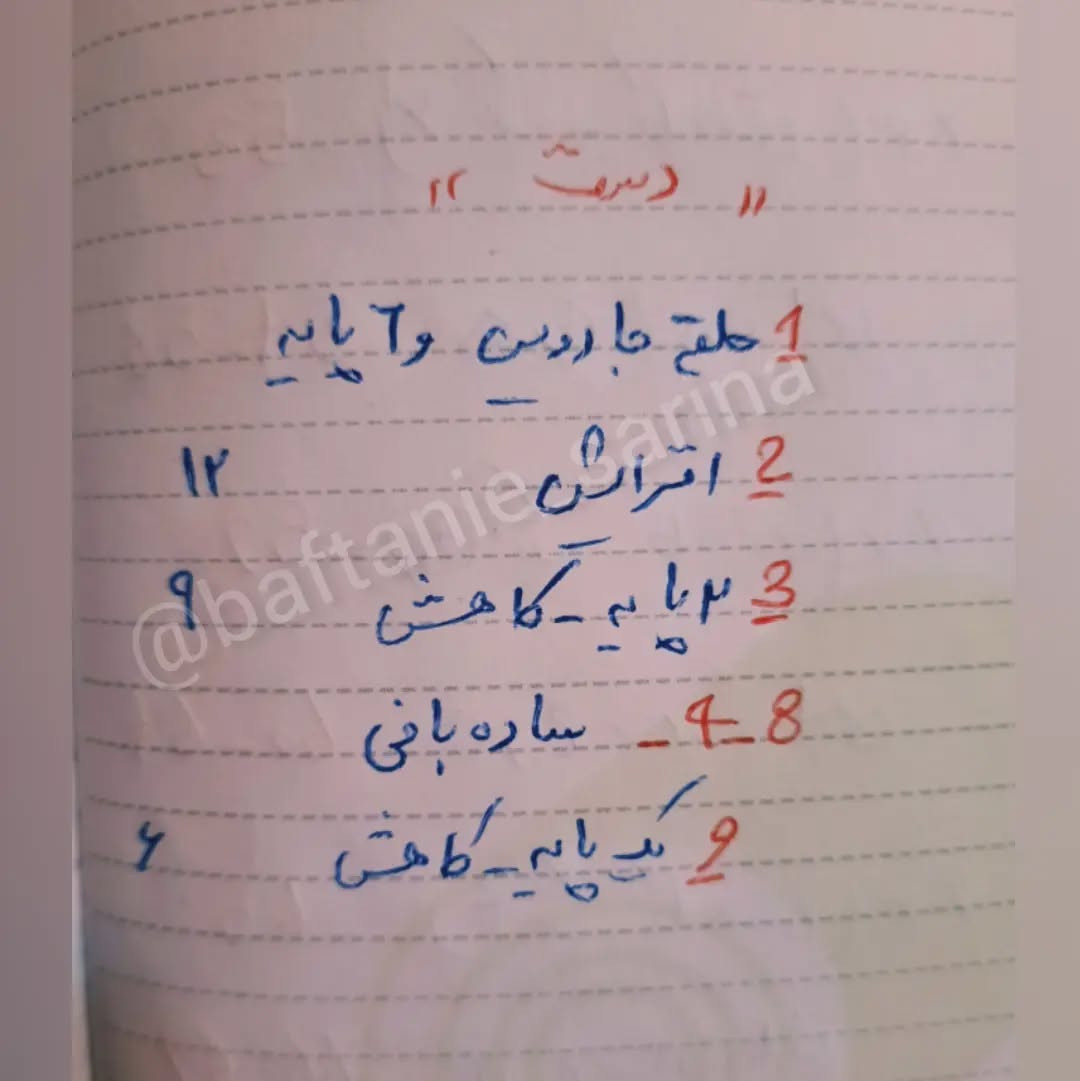 " دست "
1 حلقه جادویی و 6 پایه
2 افزایش ۱۲
3 ۲ پایه - کاهش ۹
8 - 4 - ساده بافی
9 یک پایه - کاهش ۶
@baftanie_sarina